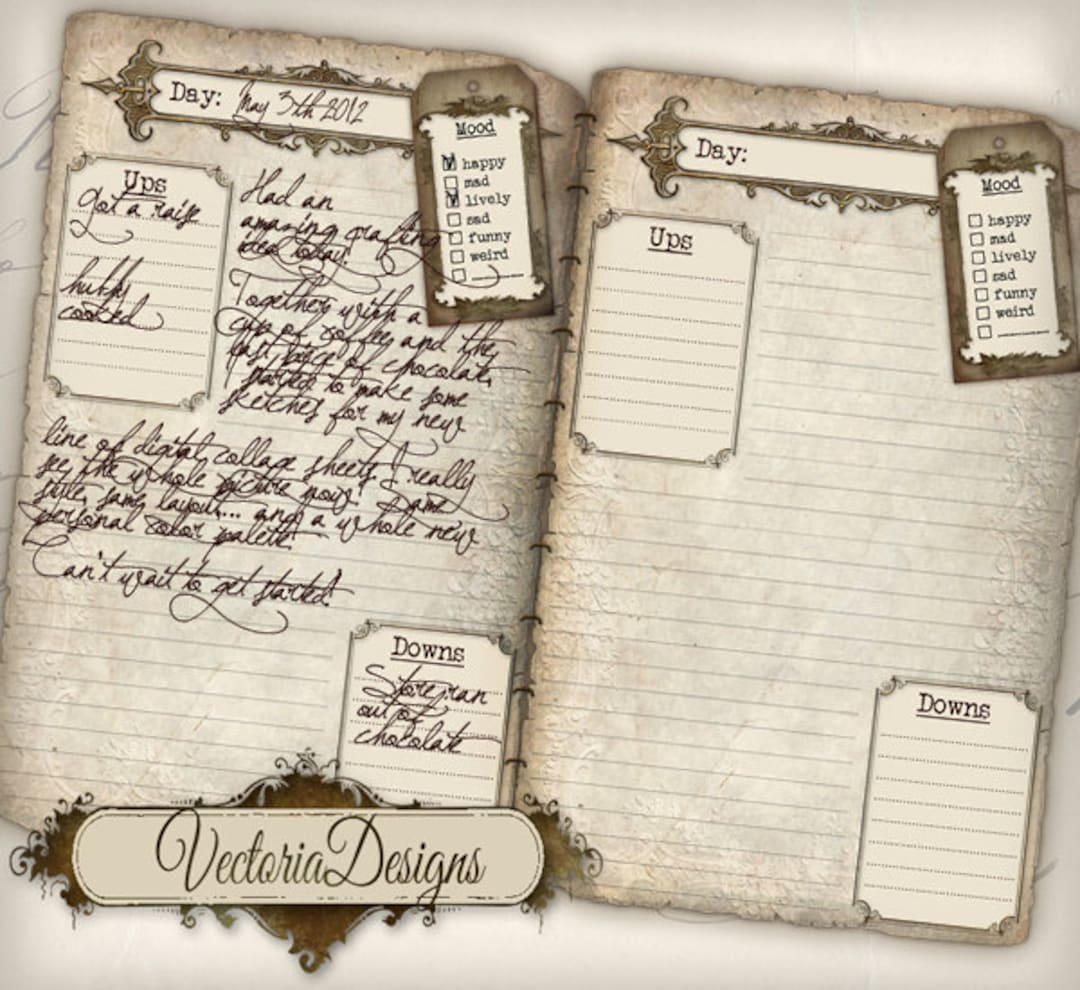 Day: May 3th 2012
Mood
happy
mad
lively
sad
funny
weird
Ups
Got a raise
hubby
cooked
Had an
amazing crafting
idea today!
Together with a
cup of coffee and the
last piece of chocolate,
started to make some
sketches for my new
line of digital collage sheets. I really
see the whole picture now! Same
style, same layout... and a whole new
personal color palette!
Can't wait to get started!
Downs
Store ran
out of
chocolate
Day:
Mood
happy
mad
lively
sad
funny
weird
Ups
Downs
VectoriaDesigns